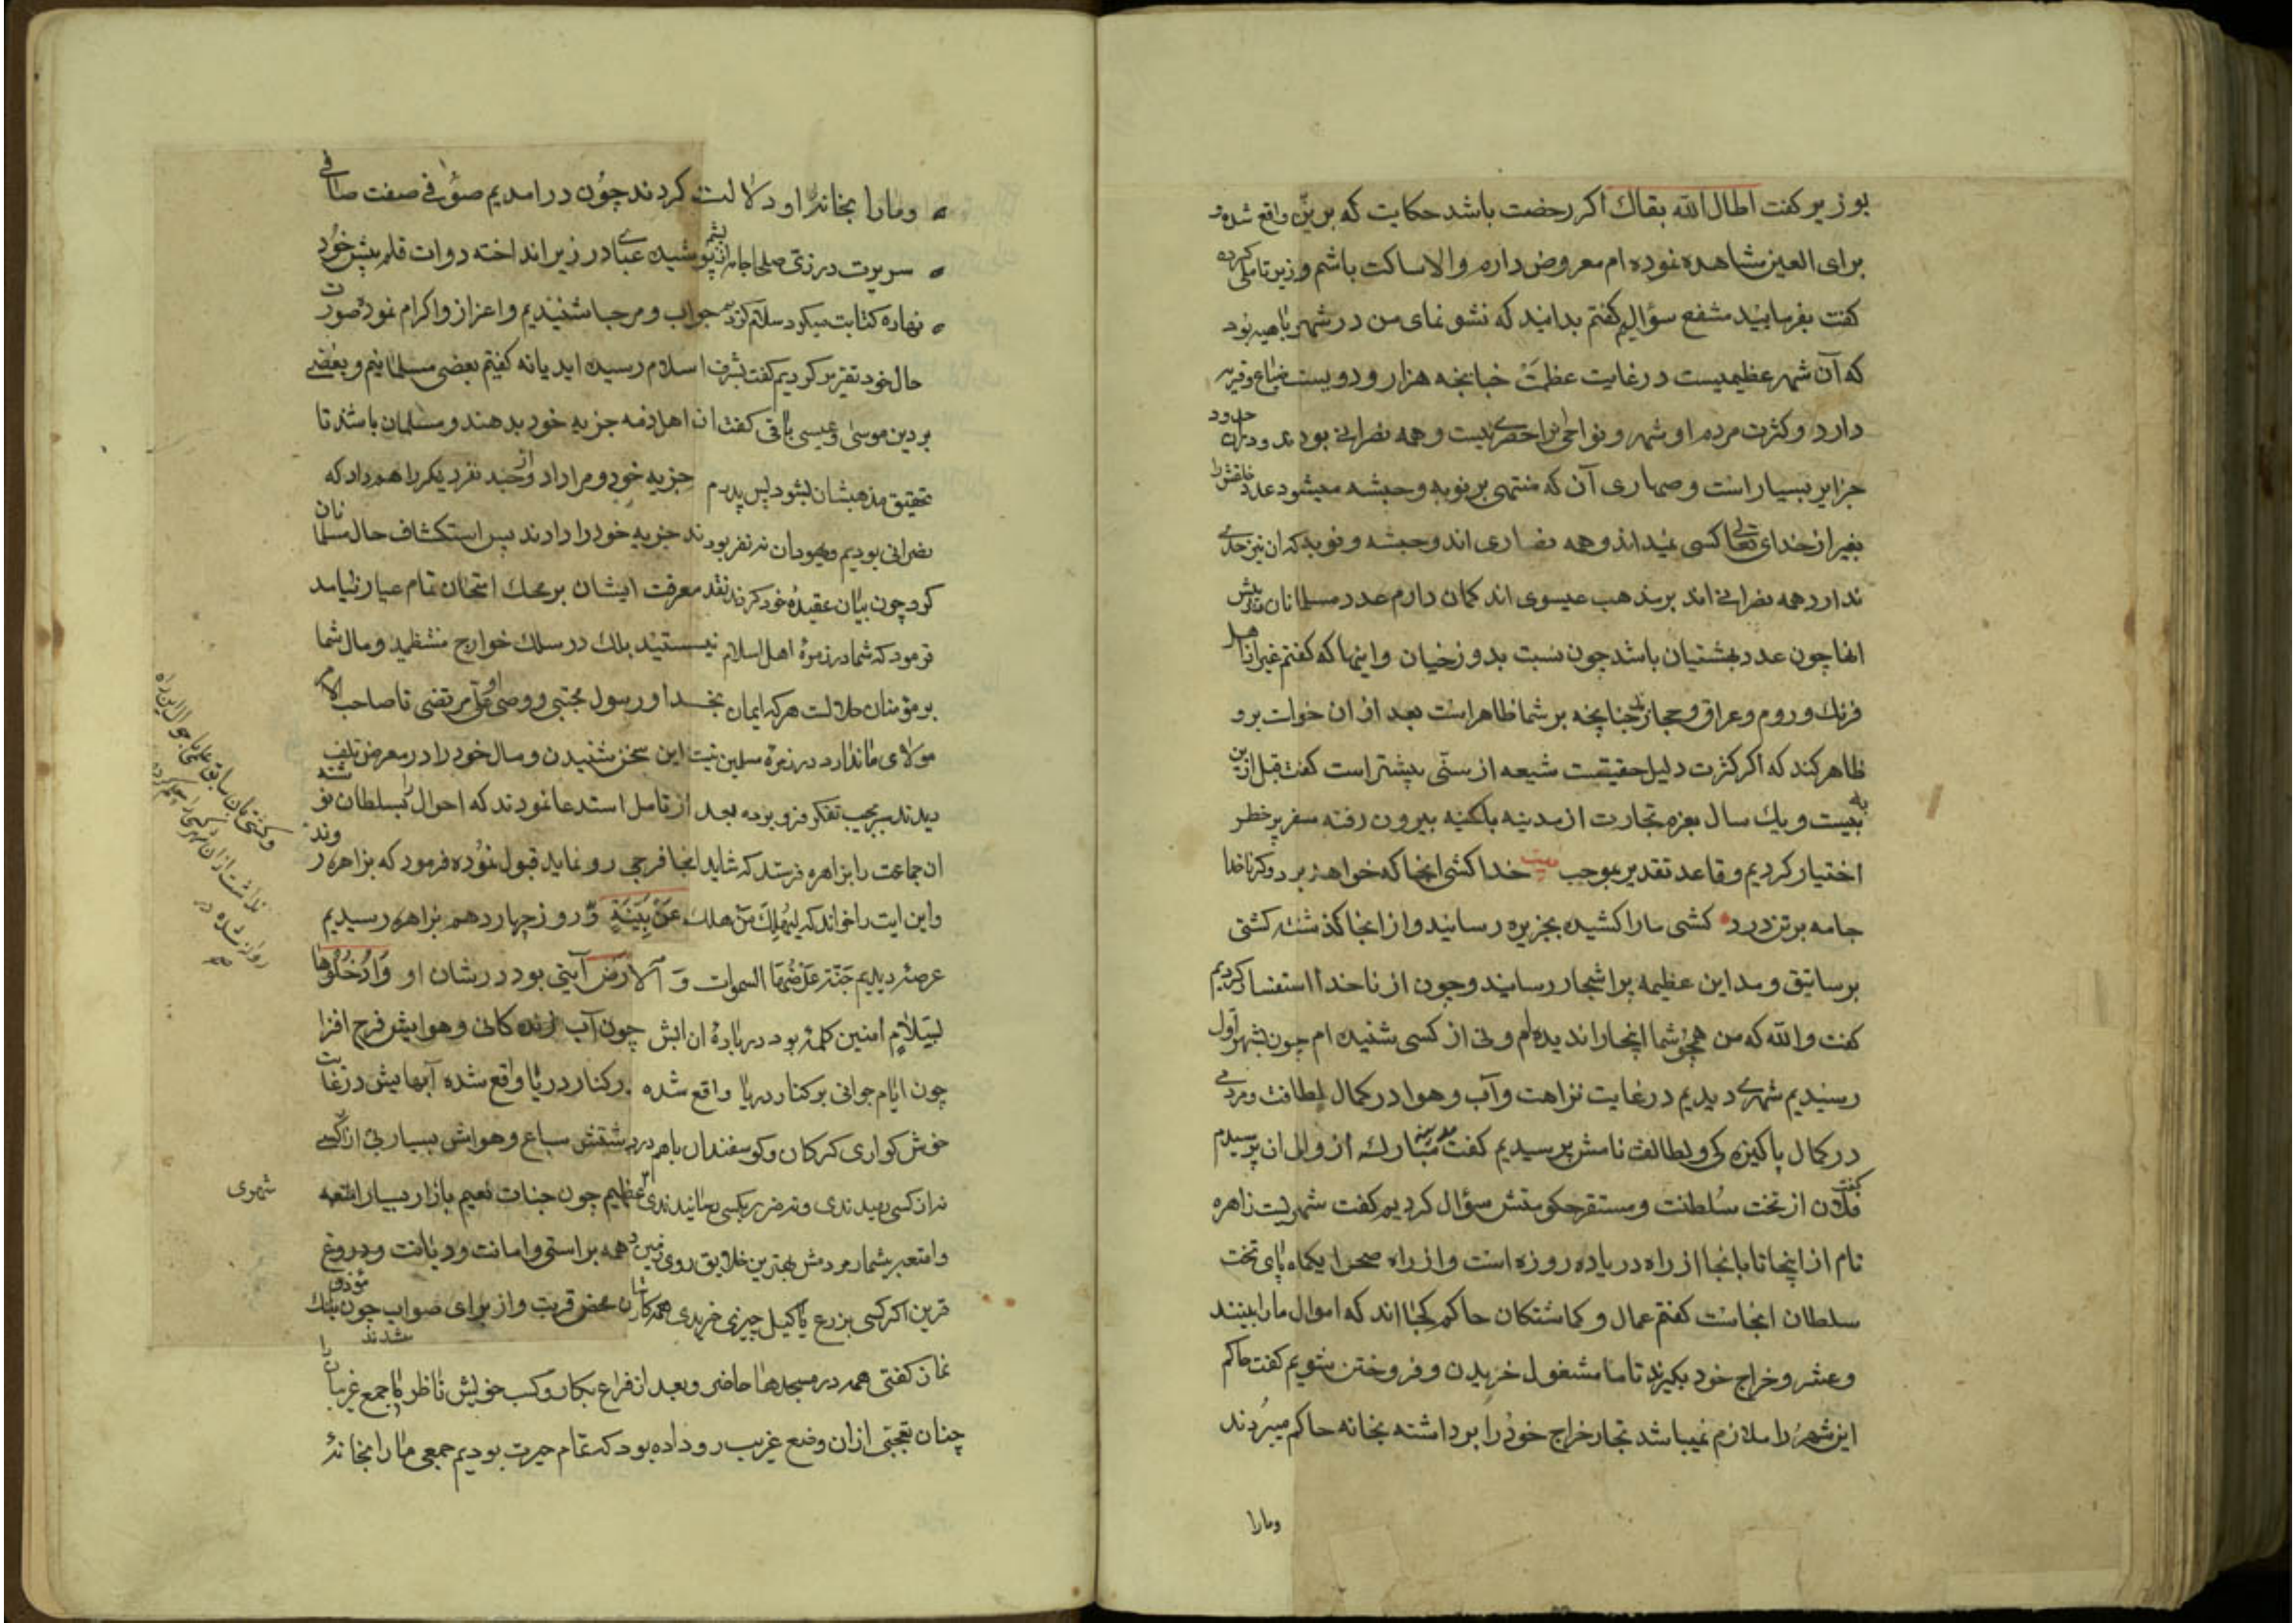 بوزیر کفت اطال الله بقاك اکر رخصت باشد حکایت که برین واقع شده و
برای العین مشاهده نموده ام معروض دارم و الا ساکت باشم وزیر تاملی کرده
کفت بفرمایید کفتم بدانید که نشو نمای من در شهر باهیه بود
که آن شهر عظیمیست در غایت عظمت هزار و دویست ضیاع و قریه
دارد و کثرت مردم او شهر و نواحی را حصری نیست و همه نصرانی بودند و در حدود
جزایر بسیار است و صحاری آن که منتهی بر نوبه و حبشه میشود عدد خلقش را
بغیر از خدای تعالی کسی نمیداند و همه نصاری اند و حبشه و نوبه که ان نیز حدی
ندارد همه نصرانی اند بر مذهب عیسوی اند کمان دارم عدد مسلمانان پیش
انها چون عدد بهشتیان باشد چون نسبت بدوزخیان و اینها که کفتم غیر از اهل
فرنك و روم و عراق و حجازند چنانچه بر شما ظاهر است بعد از ان خواست برو
ظاهر کند که اکر کثرت دلیل حقیقت شیعه از سنّی بیشتر است کفت قبل ازین
به بیست و یك سال بعزم تجارت از مدینه باکنیه بیرون رفته سفر پر خطر
اختیار کردیم و قاعد تقدیر بموجب بیت خدا کشی انجا که خواهد برد وکر ناخدا
جامه بر تن درد کشی ما را کشیده بجزیره رسانید و از انجا کذشته کشتی
برساتیق و مداین عظیمه پر اشجار رسانید و چون از ناخدا استفسار کردیم
کفت والله که من همچو شما اینجا را ندیده ام و نی از کسی شنیده ام چون بشهر اول
رسیدیم شهری دیدیم در غایت نزاهت و آب و هوا در کمال لطافت و مردمی
در کمال پاکیزه کی و لطافت نامش پرسیدیم کفت مدینه مبارکه از والی ان پرسیدیم
کفت فلان از تخت سلطنت و مستقر حکومتش سؤال کردیم کفت شهریست زاهره
نام از اینجا تا بانجا از راه دریا ده روزه است و از راه صحرا یکماه پای تخت
سلطان انجاست کفتم عمال و کماشتکان حاکم کجا اند که اموال ما را ببینند
و عشر و خراج خود بکیرند تا ما مشغول خریدن و فروختن شویم کفت حاکم
این شهر را ملازم نمیباشد تجار خراج خود را برداشته بخانه حاکم میبردند
ومارا
و مارا بخانه او دلالت کردند چون درامدیم صوفی صفت صافی
سریرت در زی صلحا جامه از پشم پوشیده عبا در زیر انداخته دوات قلم پیش خود
نهاده کتابت میکرد سلام کردیم جواب و مرحبا شنیدیم و اعزاز و اکرام نمود صورت
حال خود تقریر کردیم کفت بشرف اسلام رسیده اید یا نه کفتیم بعضی مسلمانیم و بعضی
بر دین موسی و عیسی باقی کفت ان اهل ذمه جزیه خود بدهند و مسلمان باشد تا
تحقیق مذهبشان بشود پس پدرم جزیه خود و مرا داد و از چند نفر دیکر را هم داد که
نصرانی بودیم و یهودان نه نفر بودند جزیه خود را دادند پس استکشاف حال مسلمانان
کرد چون بیان عقیده خود کردند نقد معرفت ایشان بر محك امتحان تمام عیار نیامد
فرمود که شما در زمره اهل اسلام نیستید بلك در سلك خوارج منتظمید و مال شما
بر مؤمنان حلالست هر که ایمان بخدا و رسول مجتبی و وصی او علی مرتضی تا صاحب الامر
مولای ما ندارد در زمره مسلمین نیست این سخن شنیدن و مال خود را در معرض تلف
دیدند سر بجیب تفکر فرو برده بعد از تامل استدعا نمودند که احوال را بسلطان نوشته
ان جماعت را بزاهره فرستد که شاید انجا فرجی رو نماید قبول نموده فرمود که بزاهره روند
و این ایت را خواند که لیهلك من هلك عن بینة و روز چهاردهم بزاهره رسیدیم
عرصهٔ دیدیم جنة عرضها السموات و الارض آیتی بود در شان او وادخلوها
بسلام امنین کلمهٔ بود در بارهٔ ان ابش چون آب زنده کانی و هوایش فرح افزا
چون ایام جوانی بر کنار دریا واقع شده بر کنار دریا واقع شده آبهایش در غایت
خوش کواری کرکان و کوسفندان باهم در دشتش سباع و هوامش بسیار نی از کسی
نه از کسی رمیدندی و نه ضرر بکسی رسانیدندی شهری عظیم چون جنات نعیم بازار بسیار امتعه
و امتعه بیشمار مردمش بهترین خلایق روی زمین همه براستی و امانت و دیانت و دروغ
قرین اکر کسی بزرع یا کیل چیزی خریدی همه کارشان محض قربت و از برای صواب چون مؤذن بانك
نماز کفتی همه در مسجدها حاضر شدند و بعد از فراغ بکار و کسب خویش ناظر با جمع غریبان را
چنان تعجبی از ان وضع غریب رو داده بود که تمام حیرت بودیم جمعی ما را بخانهٔ
شهری